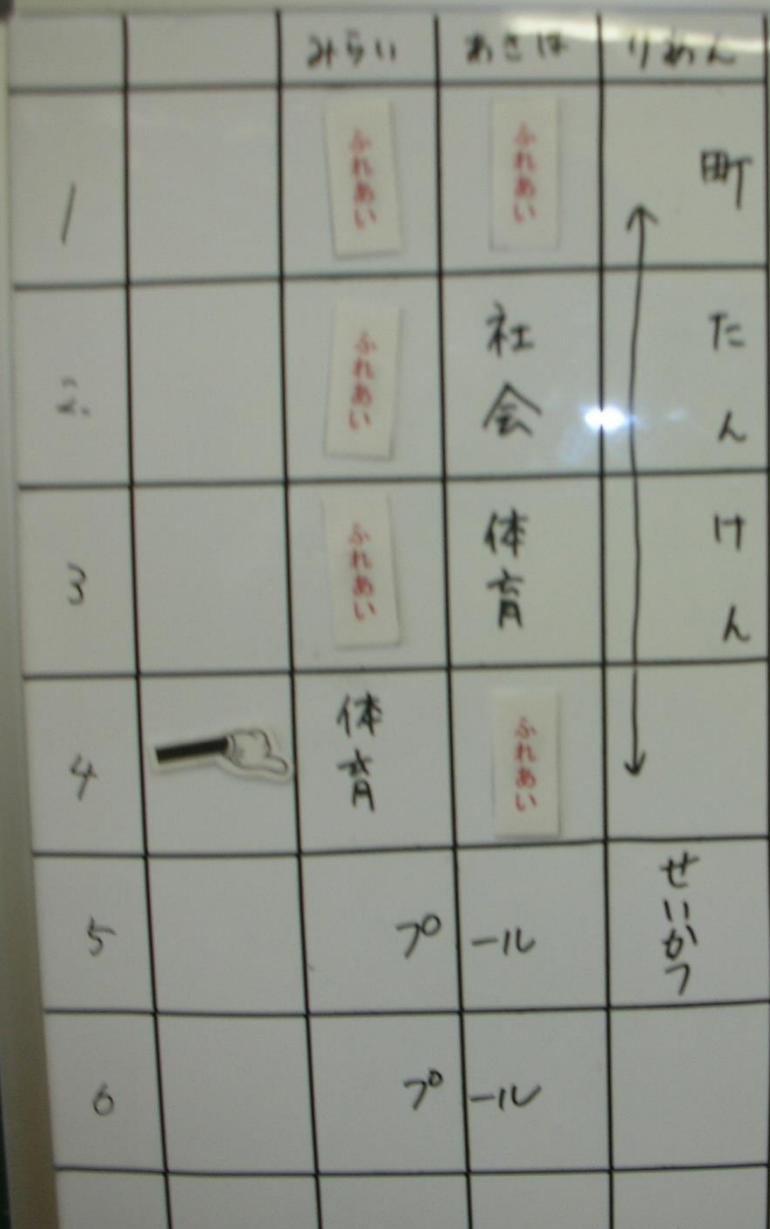 みらい あさは りあん
1 ふれあい ふれあい 町
2. ふれあい 社会 たん
3 ふれあい 体育 けん
4 体育 ふれあい
5 プール せいかつ
6 プール